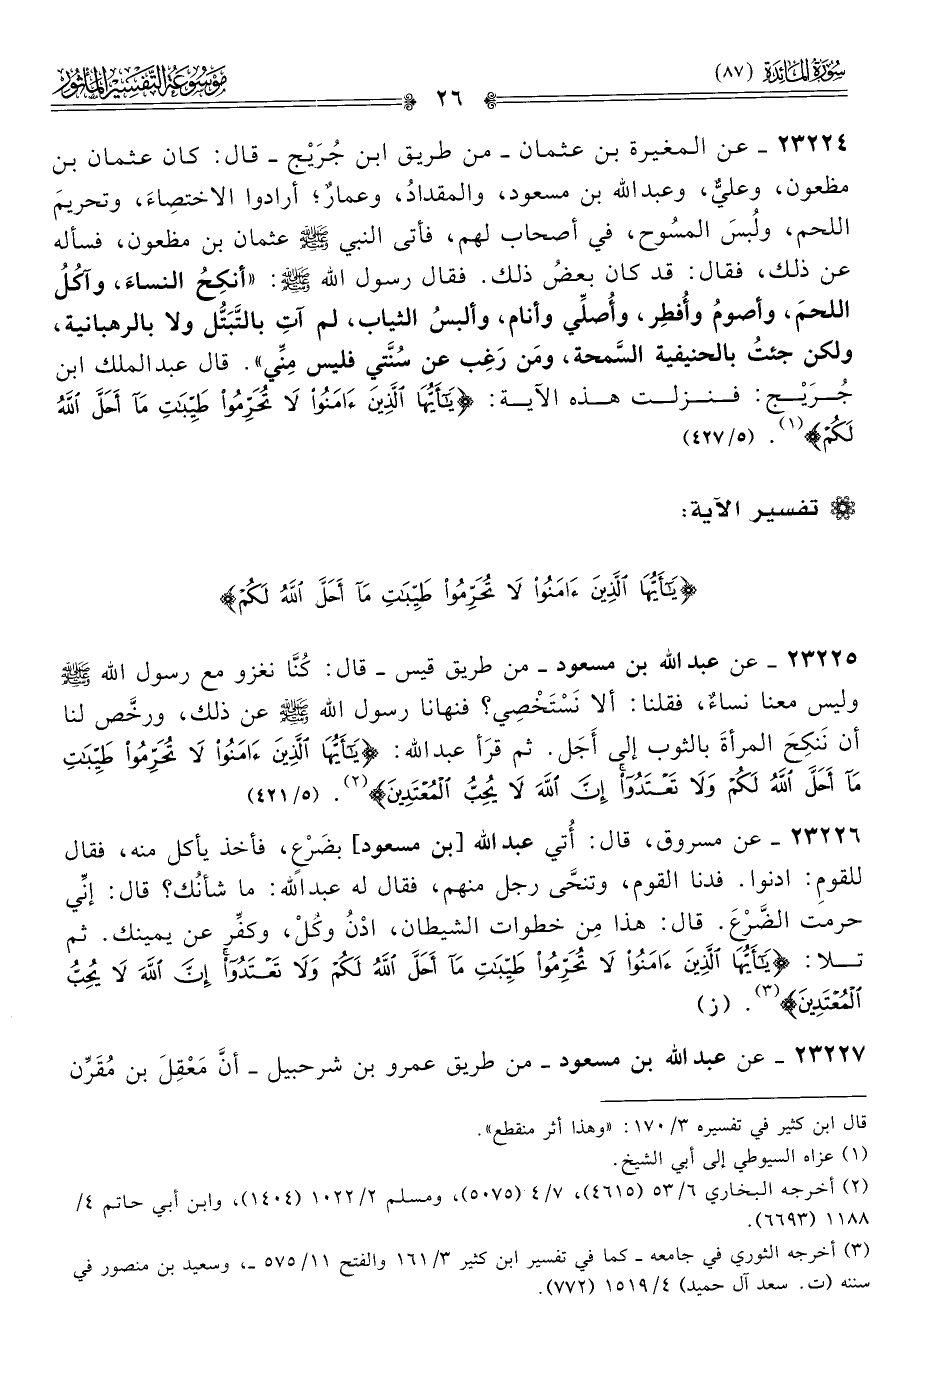 سورة المائدة (٨٧)
٢٦
موسوعة التفسير المأثور
٢٣٢٢٤ ـ عن المغيرة بن عثمان ـ من طريق ابن جُرَيْج ـ قال: كان عثمان بن
مظعون، وعليٌّ، وعبدالله بن مسعود، والمقدادُ، وعمارٌ؛ أرادوا الاختصاءَ، وتحريمَ
اللحم، ولُبسَ المسُوح، في أصحاب لهم، فأتى النبي ﷺ عثمان بن مظعون، فسأله
عن ذلك، فقال: قد كان بعضُ ذلك. فقال رسول الله ﷺ: «أنكِحُ النساءَ، وآكلُ
اللحمَ، وأصومُ وأُفطِر، وأُصلِّي وأنام، وألبسُ الثياب، لم آتِ بالتَّبَتُّل ولا بالرهبانية،
ولكن جئتُ بالحنيفية السَّمحة، ومَن رَغِب عن سُنَّتي فليس مِنِّي». قال عبدالملك ابن
جُرَيْج: فنزلت هذه الآية: ﴿يَٰٓأَيُّهَا ٱلَّذِينَ ءَامَنُوا۟ لَا تُحَرِّمُوا۟ طَيِّبَٰتِ مَآ أَحَلَّ ٱللَّهُ
لَكُمْ﴾(١). (٤٢٧/٥)
تفسير الآية:
﴿يَٰٓأَيُّهَا ٱلَّذِينَ ءَامَنُوا۟ لَا تُحَرِّمُوا۟ طَيِّبَٰتِ مَآ أَحَلَّ ٱللَّهُ لَكُمْ﴾
٢٣٢٢٥ ـ عن عبدالله بن مسعود ـ من طريق قيس ـ قال: كُنَّا نغزو مع رسول الله ﷺ
وليس معنا نساءٌ، فقلنا: ألا نَسْتَخْصِي؟ فنهانا رسول الله ﷺ عن ذلك، ورخَّص لنا
أن نَنكِحَ المرأةَ بالثوب إلى أَجَل. ثم قرَأ عبدالله: ﴿يَٰٓأَيُّهَا ٱلَّذِينَ ءَامَنُوا۟ لَا تُحَرِّمُوا۟ طَيِّبَٰتِ
مَآ أَحَلَّ ٱللَّهُ لَكُمْ وَلَا تَعْتَدُوٓا۟ إِنَّ ٱللَّهَ لَا يُحِبُّ ٱلْمُعْتَدِينَ﴾(٢). (٤٢١/٥)
٢٣٢٢٦ ـ عن مسروق، قال: أُتي عبدالله [بن مسعود] بضَرْعٍ، فأخذ يأكل منه، فقال
للقومِ: ادنوا. فدنا القوم، وتنحَّى رجل منهم، فقال له عبدالله: ما شأنُك؟ قال: إنِّي
حرمت الضَّرْعَ. قال: هذا مِن خطوات الشيطان، ادْنُ وكُلْ، وكفِّر عن يمينك. ثم
تلا: ﴿يَٰٓأَيُّهَا ٱلَّذِينَ ءَامَنُوا۟ لَا تُحَرِّمُوا۟ طَيِّبَٰتِ مَآ أَحَلَّ ٱللَّهُ لَكُمْ وَلَا تَعْتَدُوٓا۟ إِنَّ ٱللَّهَ لَا يُحِبُّ
ٱلْمُعْتَدِينَ﴾(٣). (ز)
٢٣٢٢٧ ـ عن عبدالله بن مسعود ـ من طريق عمرو بن شرحبيل ـ أنَّ مَعْقِلَ بن مُقَرِّن
قال ابن كثير في تفسيره ٣/ ١٧٠: «وهذا أثر منقطع».
(١) عزاه السيوطي إلى أبي الشيخ.
(٢) أخرجه البخاري ٦/ ٥٣ (٤٦١٥)، ٧/ ٤ (٥٠٧٥)، ومسلم ٢/ ١٠٢٢ (١٤٠٤)، وابن أبي حاتم ٤/
١١٨٨ (٦٦٩٣).
(٣) أخرجه الثوري في جامعه ـ كما في تفسير ابن كثير ٣/ ١٦١ والفتح ١١/ ٥٧٥ ـ، وسعيد بن منصور في
سننه (ت. سعد آل حميد) ٤/ ١٥١٩ (٧٧٢).